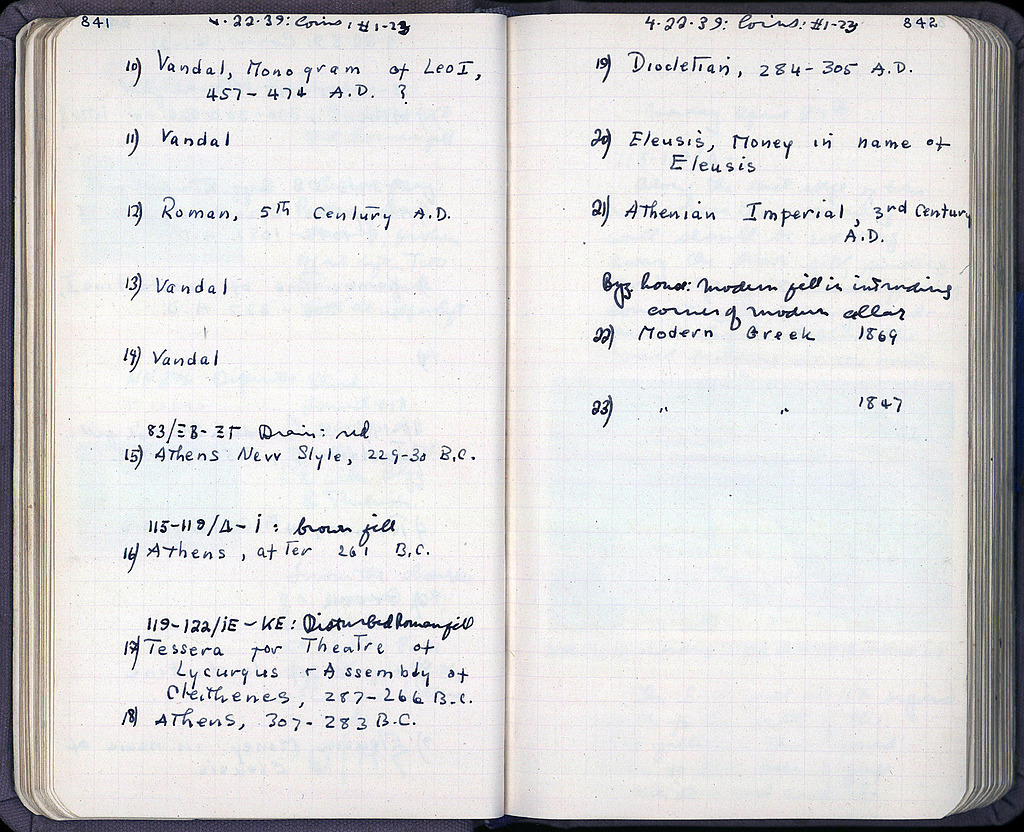 841
4.22.39: Coins: #1-23
10) Vandal, Monogram of Leo I,
457-474 A.D. ?
11) Vandal
12) Roman, 5TH Century A.D.
13) Vandal
14) Vandal
83/ΞΒ-ΞΓ Drain: red
15) Athens New Style, 229-30 B.C.
115-118/Δ-Ι: brown fill
16) Athens, after 261 B.C.
119-122/ΙΕ-ΚΕ: Disturbed Roman fill
17) Tessera for Theatre of
Lycurgus + Assembly of
Cleithenes, 287-266 B.C.
18) Athens, 307-283 B.C.
4.22.39: Coins: #1-23
842
19) Diocletian, 284-305 A.D.
20) Eleusis, Money in name of
Eleusis
21) Athenian Imperial, 3rd Century
A.D.
Byz house: modern fill in intruding
corner of modern cellar
22) Modern Greek 1869
23) " " 1847